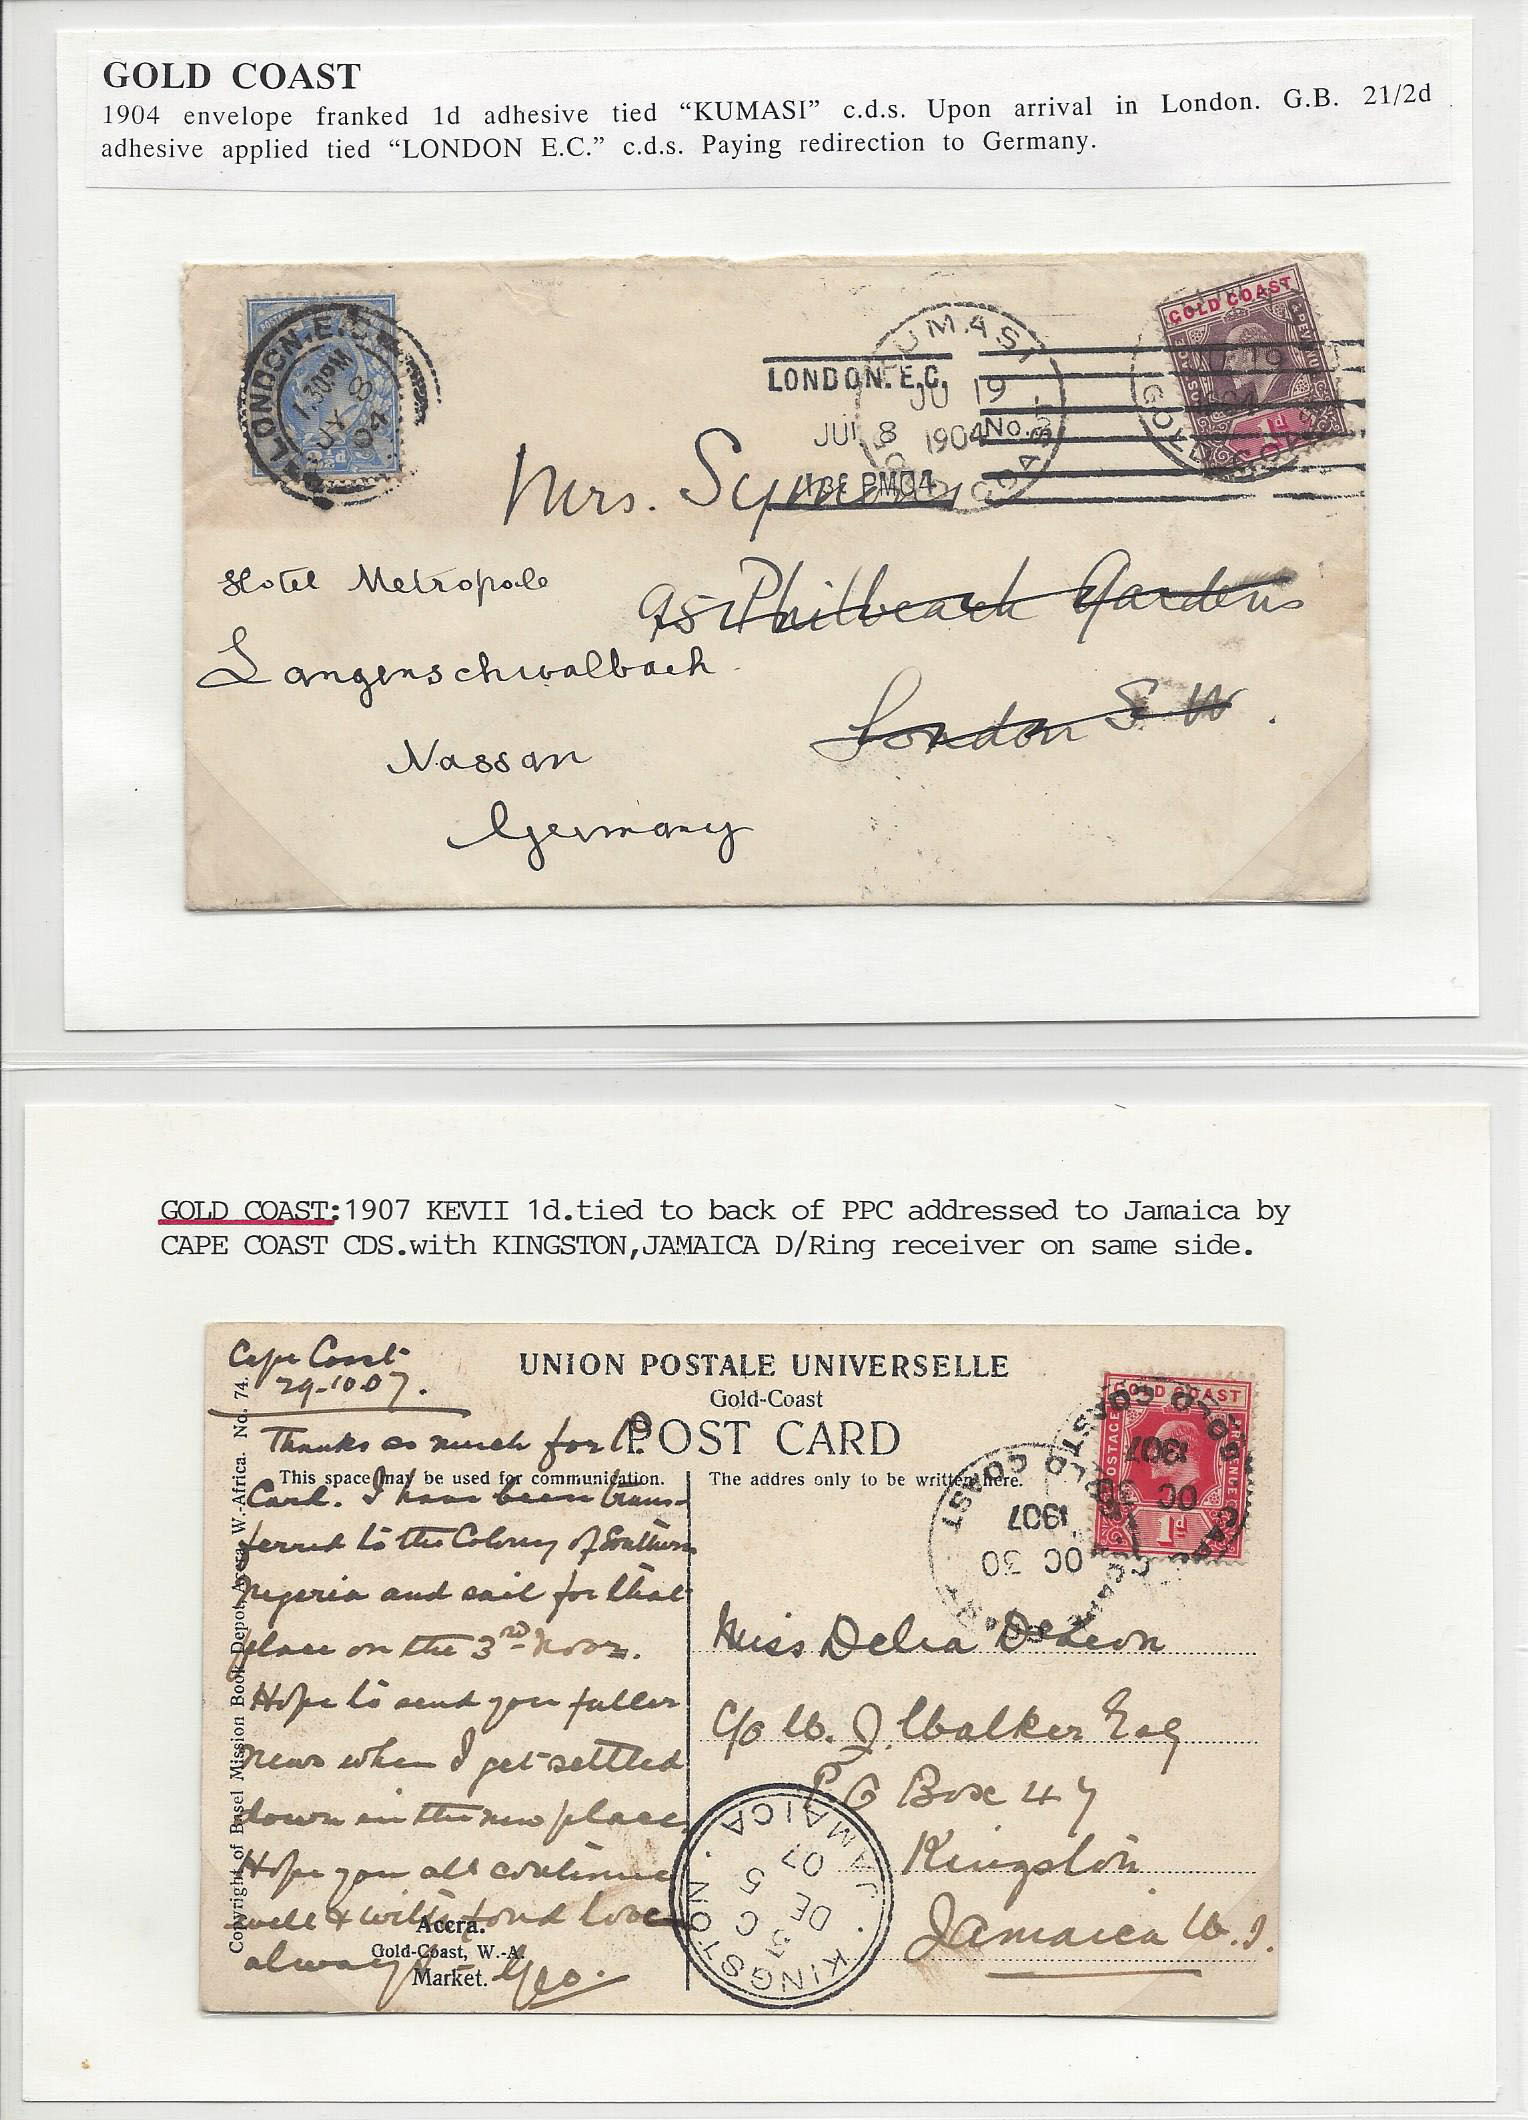 GOLD COAST
1904 envelope franked 1d adhesive tied “KUMASI” c.d.s. Upon arrival in London. G.B. 21/2d
adhesive applied tied “LONDON E.C.” c.d.s. Paying redirection to Germany.
LONDON.E.C.
1.30PM
JY 8
04
2½d
LONDON.E.C.
JUL 8
PM04
KUMASI
JU 19
1904
GOLD COAST
GOLD COAST
1d
GOLD COAST
No.
Mrs. Symons
95 Philbeach Gardens
London S.W.
Hotel Metropole
Langenschwalbach
Nassau
Germany
GOLD COAST:1907 KEVII 1d.tied to back of PPC addressed to Jamaica by
CAPE COAST CDS.with KINGSTON,JAMAICA D/Ring receiver on same side.
UNION POSTALE UNIVERSELLE
Gold-Coast
POST CARD
This space may be used for communication.
The addres only to be written here.
Copyright of Basel Mission Book Depot, Accra, W.-Africa. No. 74.
Cape Coast
29-10-07.
Thanks so much for P.
Card. I have been trans-
ferred to the Colony of Southern
Nigeria and sail for that
place on the 3rd Novr.
Hope to send you fuller
news when I get settled
down in the new place.
Hope you all continue
well & with fond love
always Geo.
Accra.
Gold-Coast, W.-A.
Market.
GOLD COAST
POSTAGE
REVENUE
1d
CAPE COAST
OC 30
1907
GOLD COAST
OC 30
1907
GOLD COAST
Miss Delia Deleon
c/o W. J. Walker Esq
P O Box 47
Kingston
Jamaica W.I.
KINGSTON . JAMAICA
DE 5
07